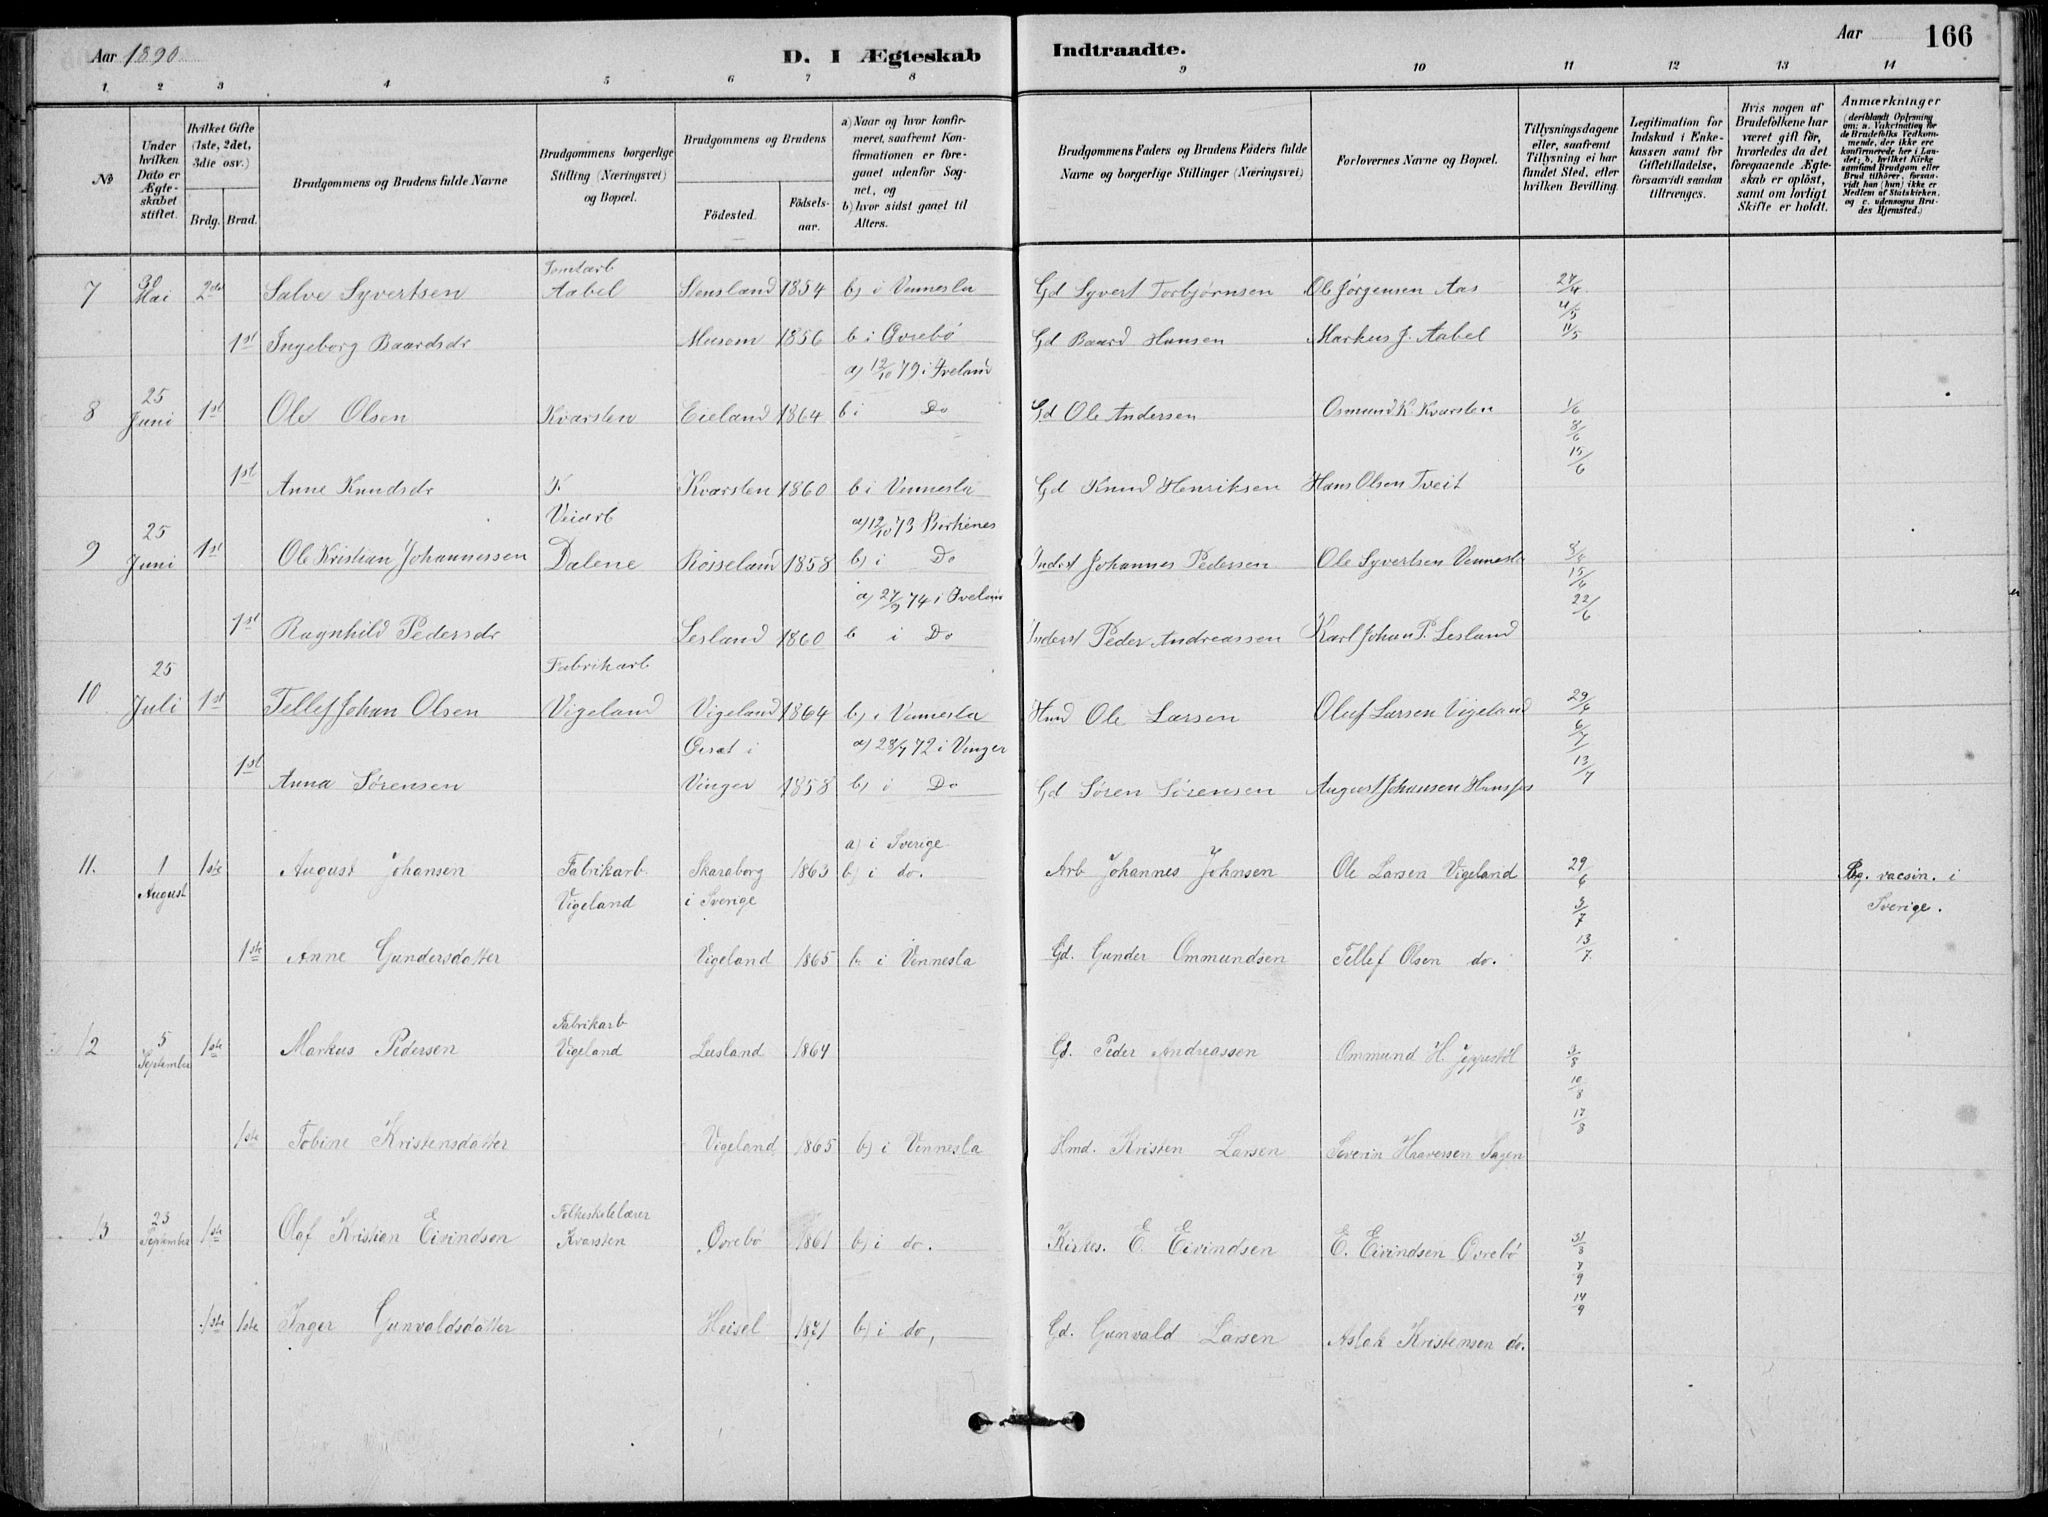 Aar 1890
D. I Ægteskab
Indtraadte.
Aar
166
1 2 3 4 5 6 7 8 9 10 11 12 13 14
№
Under hvilken Dato er Ægteskabet stiftet.
Hvilket Gifte (1ste, 2det, 3die osv.)
Brdg. Brud.
Brudgommens og Brudens fulde Navne
Brudgommens borgerlige Stilling (Næringsvei) og Bopæl.
Brudgommens og Brudens
Födested.
Födselsaar.
a) Naar og hvor konfirmeret, saafremt Konfirmationen er foregaaet udenfor Sognet, og
b) hvor sidst gaaet til Alters.
Brudgommens Faders og Brudens Faders fulde Navne og borgerlige Stillinger (Næringsvei)
Forlovernes Navne og Bopæl.
Tillysningsdagene eller, saafremt Tillysning ei har fundet Sted, efter hvilken Bevilling.
Legitimation for Indskud i Enkekassen samt for Giftetilladelse, forsaavidt saadan tiltrænges.
Hvis nogen af Brudefolkene har været gift før, hvorledes da det foregaaende Ægteskab er oplöst, samt om lovligt Skifte er holdt.
Anmærkninger
(deriblandt Oplysning om: a. Vakcination for de Brudefolks Vedkommende, der ikke ere konfirmerede her i Landet; b. hvilket Kirkesamfund Brudgom eller Brud tilhörer, forsaavidt han (hun) ikke er Medlem af Statskirken, og c. udensogns Brudes Hjemsted.)
7 30 Mai 2de Salve Syvertsen Tomtarb Aabel Stensland 1854 b) i Vennesla Gd Syvert Torbjørnsen Ole Jørgensen Aas 27/4 4/5 11/5
1st Ingeborg Baardsdr Musom 1856 b i Øvrebö Gd Baard Hansen Markus J. Aabel
8 25 Juni 1st Ole Olsen Kvarsten Eieland 1864 a) 12/10 79 i Iveland b i Do Gd Ole Andersen Osmund K. Kvarsten 1/6 8/6 15/6
1st Anne Knudsdr K Kvarsten 1860 b i Vennesla Gd Knud Henriksen Hans Olsen Tveit
9 25 Juni 1st Ole Kristian Johannessen Veiarb Dalene Roiseland 1858 a) 12/10 73 Birkenes b) i Do Inderst Johannes Pedersen Ole Syvertsen Vennesla 8/6 15/6 22/6
1st Ragnhild Pedersdr Lesland 1860 a) 27/9 74 i b i Do Inderst Peder Andreassen Karl Johan P. Lesland
10 25 Juli 1st Tellef Johan Olsen Fabrikarb Vigeland Vigeland 1864 b) i Vennesla Hmd Ole Larsen Oluf Larsen Vigeland 29/6 6/7 13/7
1st Anna Sørensen i Vinger 1858 a) 28/7 72 i Vinger b) i Do Gd Sören Sörensen August Johansen
11. 1 August 1ste August Johansen Fabrikarb. Vigeland Skaraborg i Sverige 1863 a) i Sverige b) i do. Arb Johannes Johnsen Ole Larsen Vigeland 29/6 3/7 13/7 Bg. vacsin. i Sverige.
1ste Anne Gundersdatter Vigeland 1865 b. i Vennesla Gd. Gunder Ommundsen Tellef Olsen do.
12 5 September 1ste Markus Pedersen Fabrikarb Vigeland Lesland 1864 Gd. Peder Andreassen Ommund H. Jeppestöl 3/8 10/8 17/8
1ste Tobine Kristensdatter Vigeland 1865 b) i Vennesla Hmd. Kristen Larsen Severin Haaversen Sagen
13 23 September 1ste Olaf Kristian Eivindsen Folkeskolelærer Kvarsten Øvrebö 1861 b) i do. Kirkes. E. Eivindsen E. Eivindsen Øvrebö 31/8 7/9 14/9
1ste 1ste Inger Gunvaldsdatter Heisel 1871 b) i do, Gd. Gunvald Larsen Aslak Kristensen do.